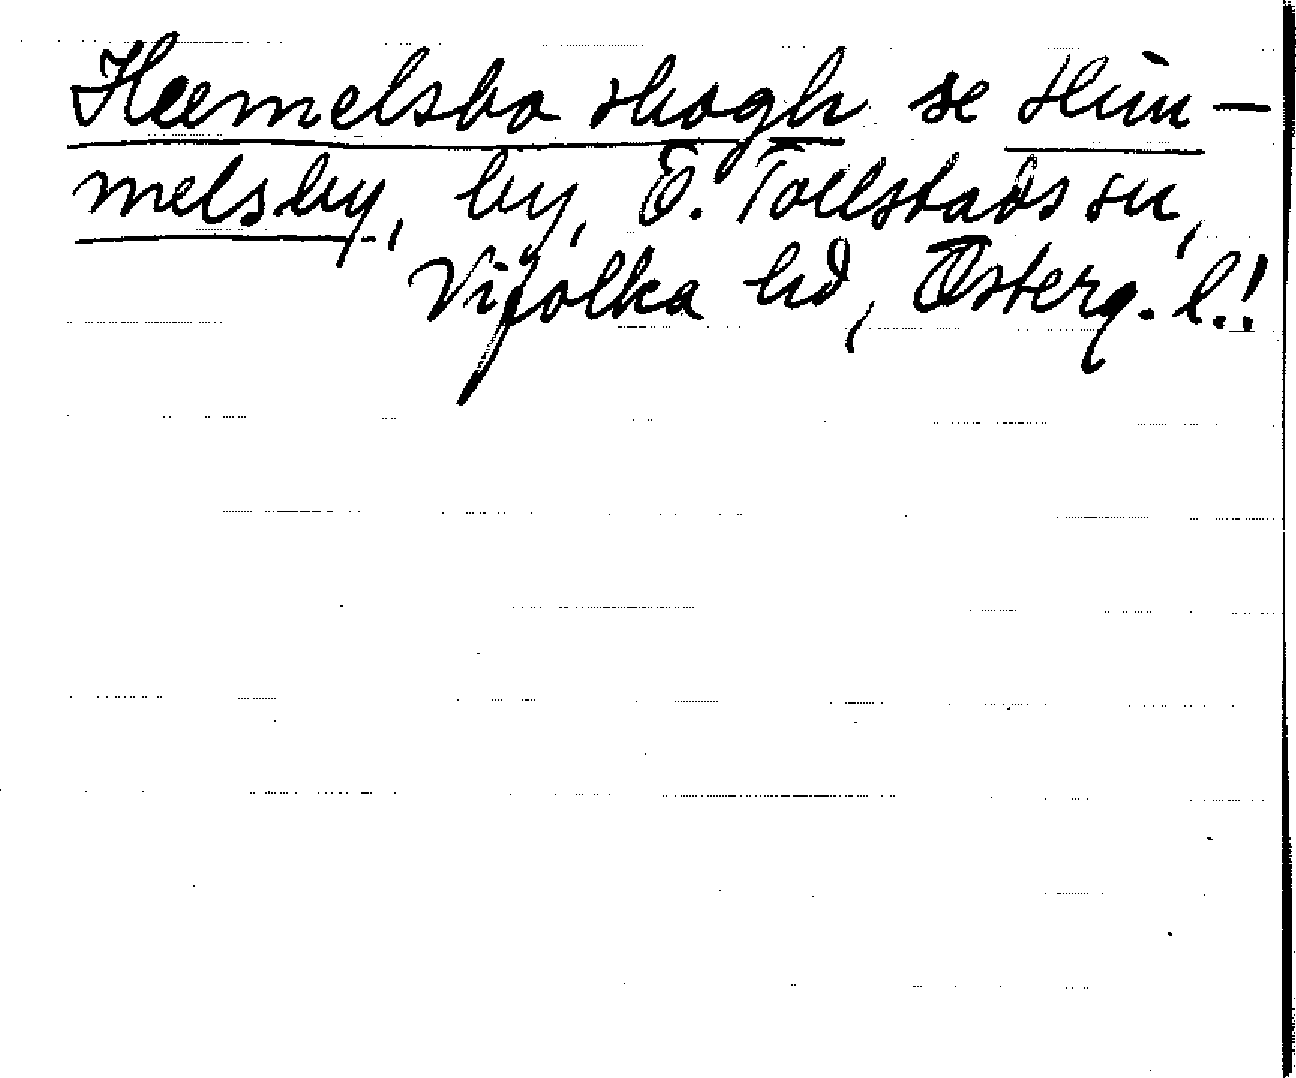 Heemelsbo skogh se Him-
melsby, by, Ö. Tollstads sn,
Vifolka hd, Österg. l.!